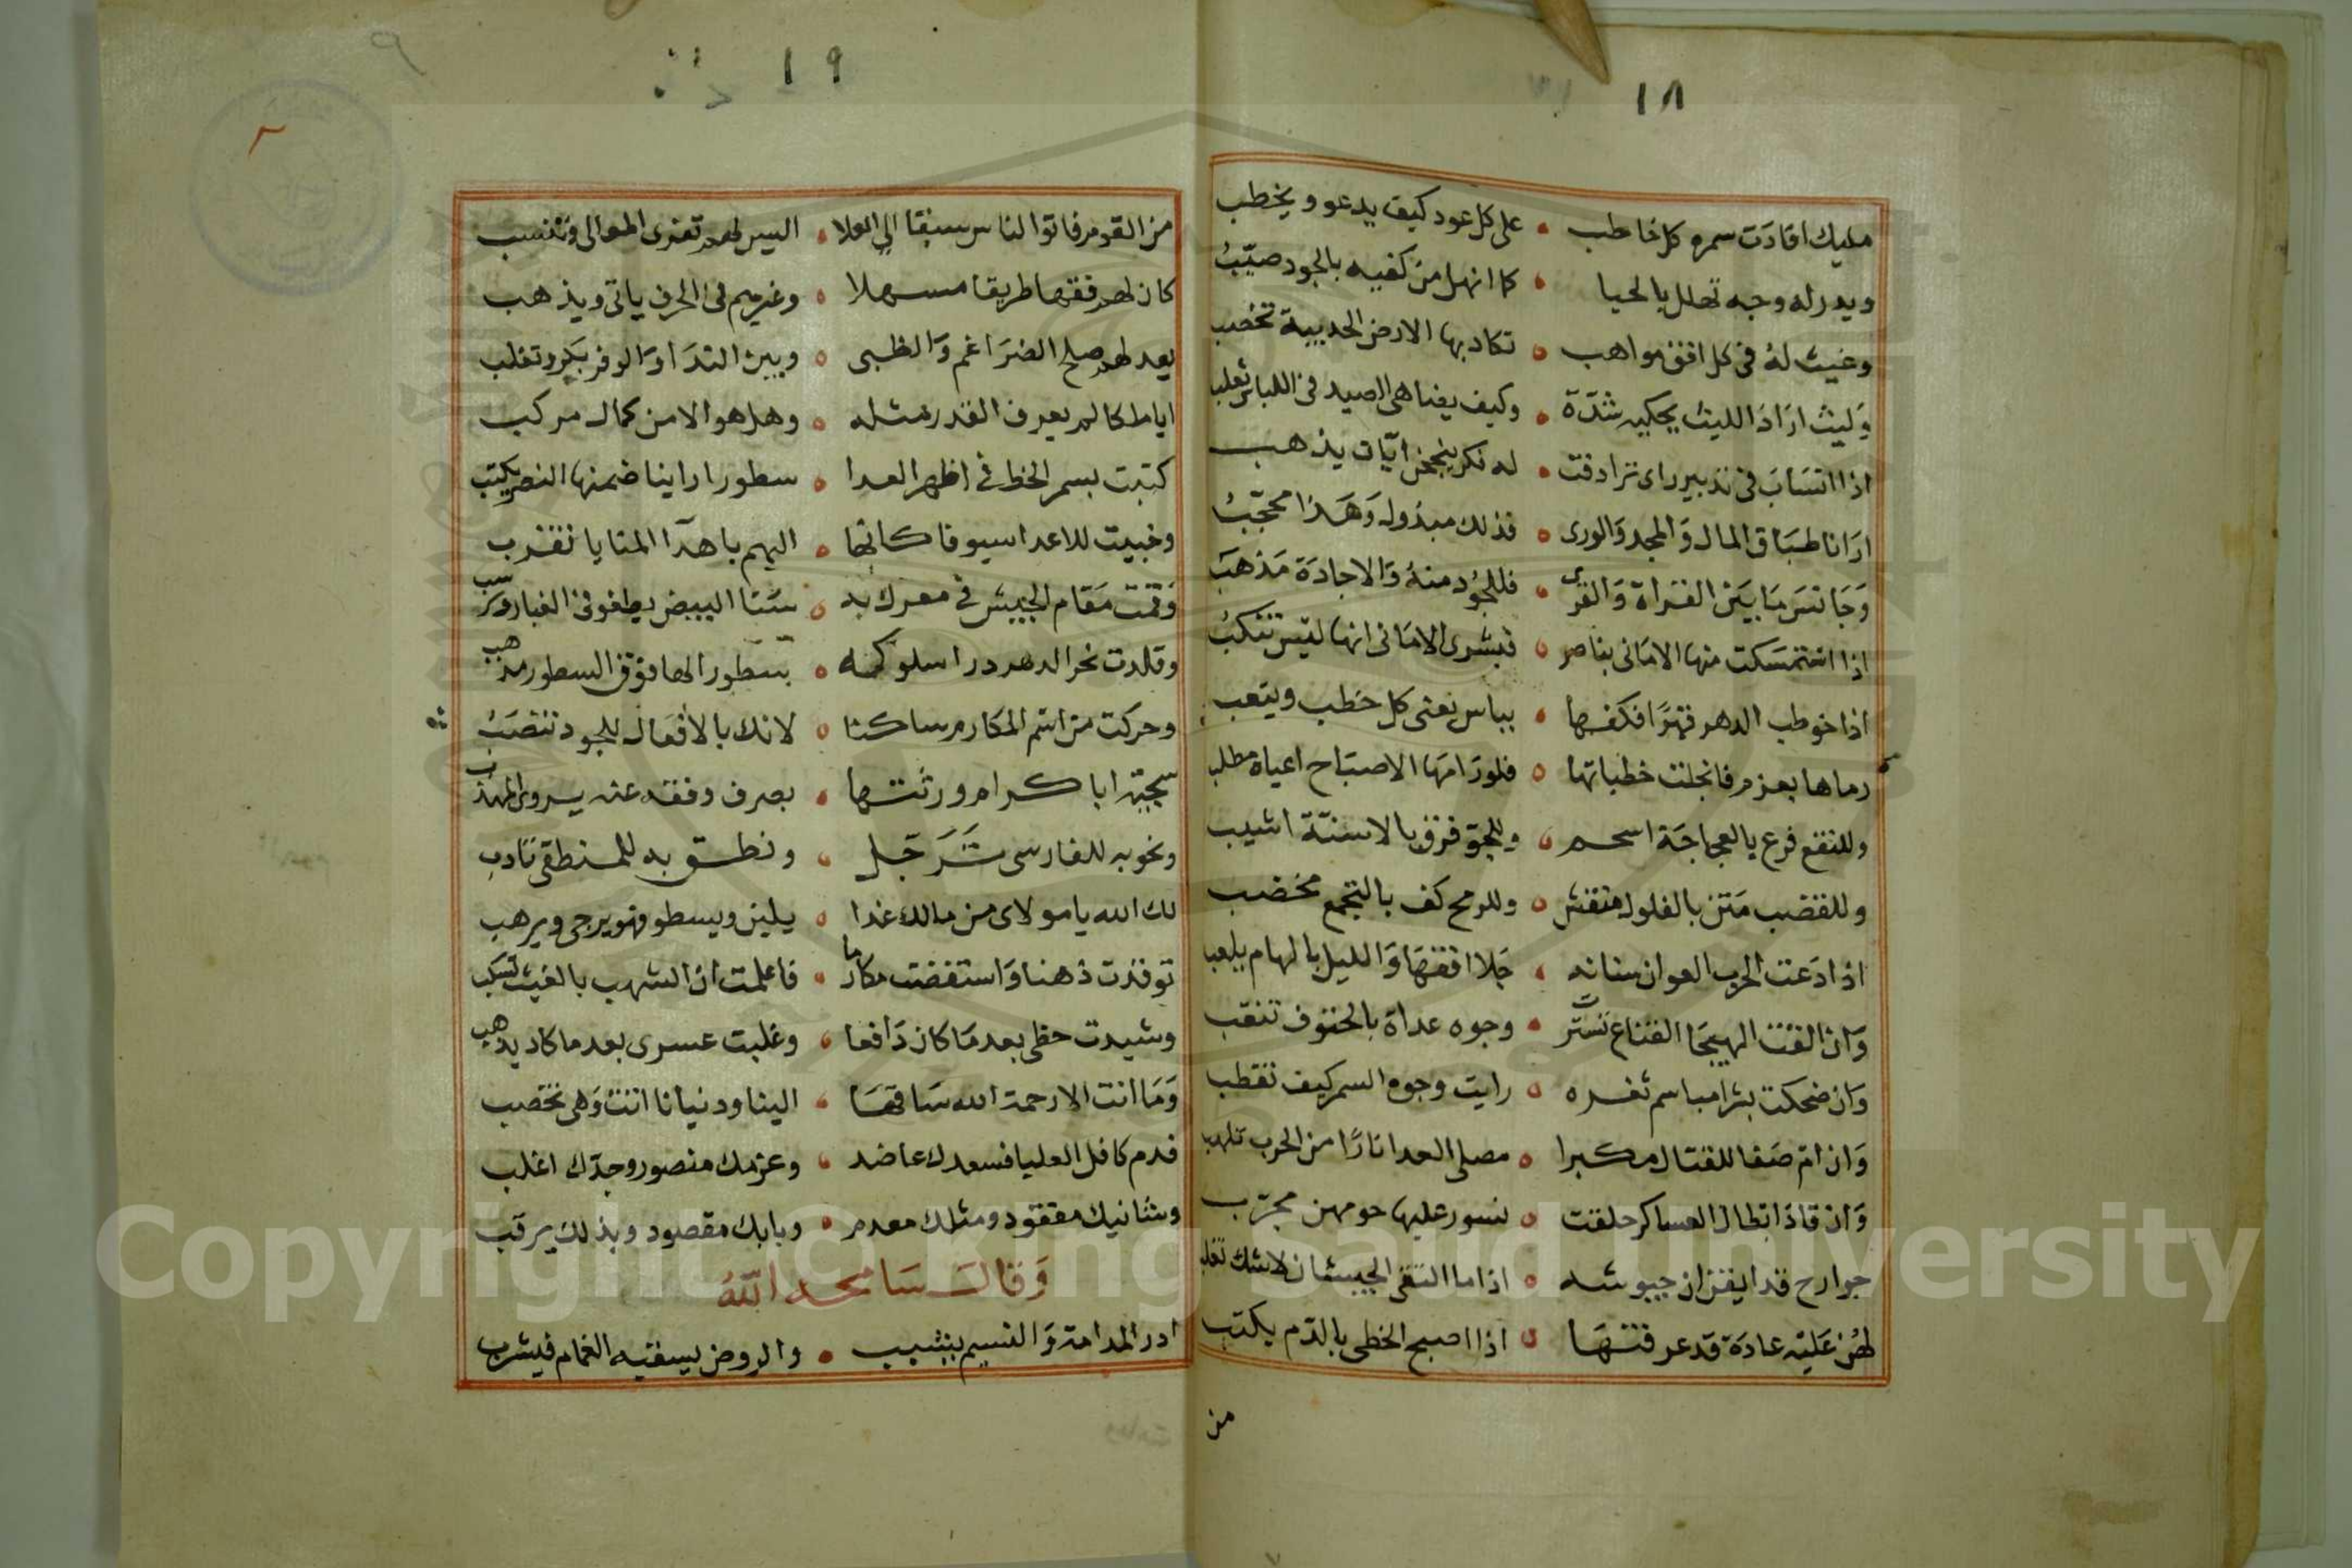 ١٨
مليك افادت سمره كل خاطب • على كل عود كيف يدعو ويخطب
وبدر له وجه تهلل بالحيا • كما انهل من كفيه بالجود صيّبُ
وغيث لهُ فى كل افق مواهب • تكاد بها الارض الجديبة تخصب
وَليث ارَادَ الليث يحكيه شدّة • وكيف يضاهى الصيد فى اللباس ثعلب
اذا انسَابَ فى تدبير راى ترادفت • له فكر ينجحن ايّان يذهب
ارَانا طبَاق المال وَالمجد وَالورى • فذلك مبذول وَهَذا محجّبُ
وَجَانسَ مَا بيَن القراة وَالقرى • فللجُود منهُ وَالاجادَة مَذهَب
اذا استمسَكت منها الامَانى بناصر • فبشرى الامَانى انها ليس تنكبُ
اذا خوطب الدهر قهرًا فكفها • بباس يعنى كل خطب ويتعب
رماها بعزم فانجلت خطباتها • فلو رَامهَا الاصبَاح اعياه مطلب
وللنقع فرع بالعجاجَة اسحم • وللجوّ فرق بالاسنّة اشيب
وللقضب مَتن بالفلول منقش • وللرمح كف بالتجمع مخضب
اذا دَعت الحرب العوان سنانه • جَلا افقهَا وَالليل بالهام يلعب
وَان القت الهيجَا القناع تستّرت • وجوه عداة بالحتوف تنقب
وَان ضحكت بشرا مباسم ثغره • رايت وجوه السمر كيف تقطب
وَان امّ صَفا للقتال مكبرا • مصلى العدا نارًا من الحرب تلهب
وَان قادَ ابطال العساكر حلقت • نسور عليها حومهن مجرّب
جوارح قد ايقن ان جيوشه • اذا ما التقى الجيشان لاشك تغلب
لهُن عَليْه عادَة قد عرفنهَا • اذا اصبح الخطى بالدّم يكتب
من
١٩
من القوم فاتوا الناس سبقا الى العلا • اليس لهم تعزى المعالى وتنسب
كان لهم فقها طريقا مسهلا • وغيرهم فى الحرف ياتى ويذهب
يعد لهم صلح الضرَاغم وَالظبى • وبين الندَا وَالوفر بكر وتغلب
ايا ملكا لم يعرف القدر مثله • وهل هو الا من كمال مركب
كتبت بسمر الخط فى اظهر العدا • سطورا راينا ضمنها النصر يكتب
وخبيت للاعدا سيوفا كانها • اليهم باهدا المنايا تقرب
وَقمت مَقام الجيش فى معرك به • سَنا البيض يطفو فى الغبار ويرسب
وقلدت نحر الدهر درا سلوكه • سطور الها فوق السطور مذهب
وحركت من اسم المكارم ساكنا • لانك بالافعَال للجود تنصَبُ
سجيّة ابا كرام ورثتها • بصرف وفقه عنه يروى المهذب
ونحو به للفارسى تَرَجّل • ونطق به للمنطقى تادب
لك الله يا مولاى من مالك غدا • يلين ويسطو فهو يرجى ويرهب
توقدت ذهنا وَاستفضت مكارما • فاعلمت ان الشهب بالغيث تسكب
وشيدت حظى بعد مَا كان دَافعا • وغلبت عسرى بعد ما كاد يذهب
وَمَا انت الا رحمة الله سَاقهَا • الينا ودنيانا اتت وَهى تخصب
فدم كافل العليا فسعدك عاضد • وعزمك منصور وجدّك اغلب
وشانيك مفقود ومثلك معدم • وبابك مقصود وبذلك يرقب
وَقال سَامحه اللّٰهُ
ادر المدامة وَالنسيم ينثيب • والروض يسقيه الغمام فيشرب
Copyright © King Saud University